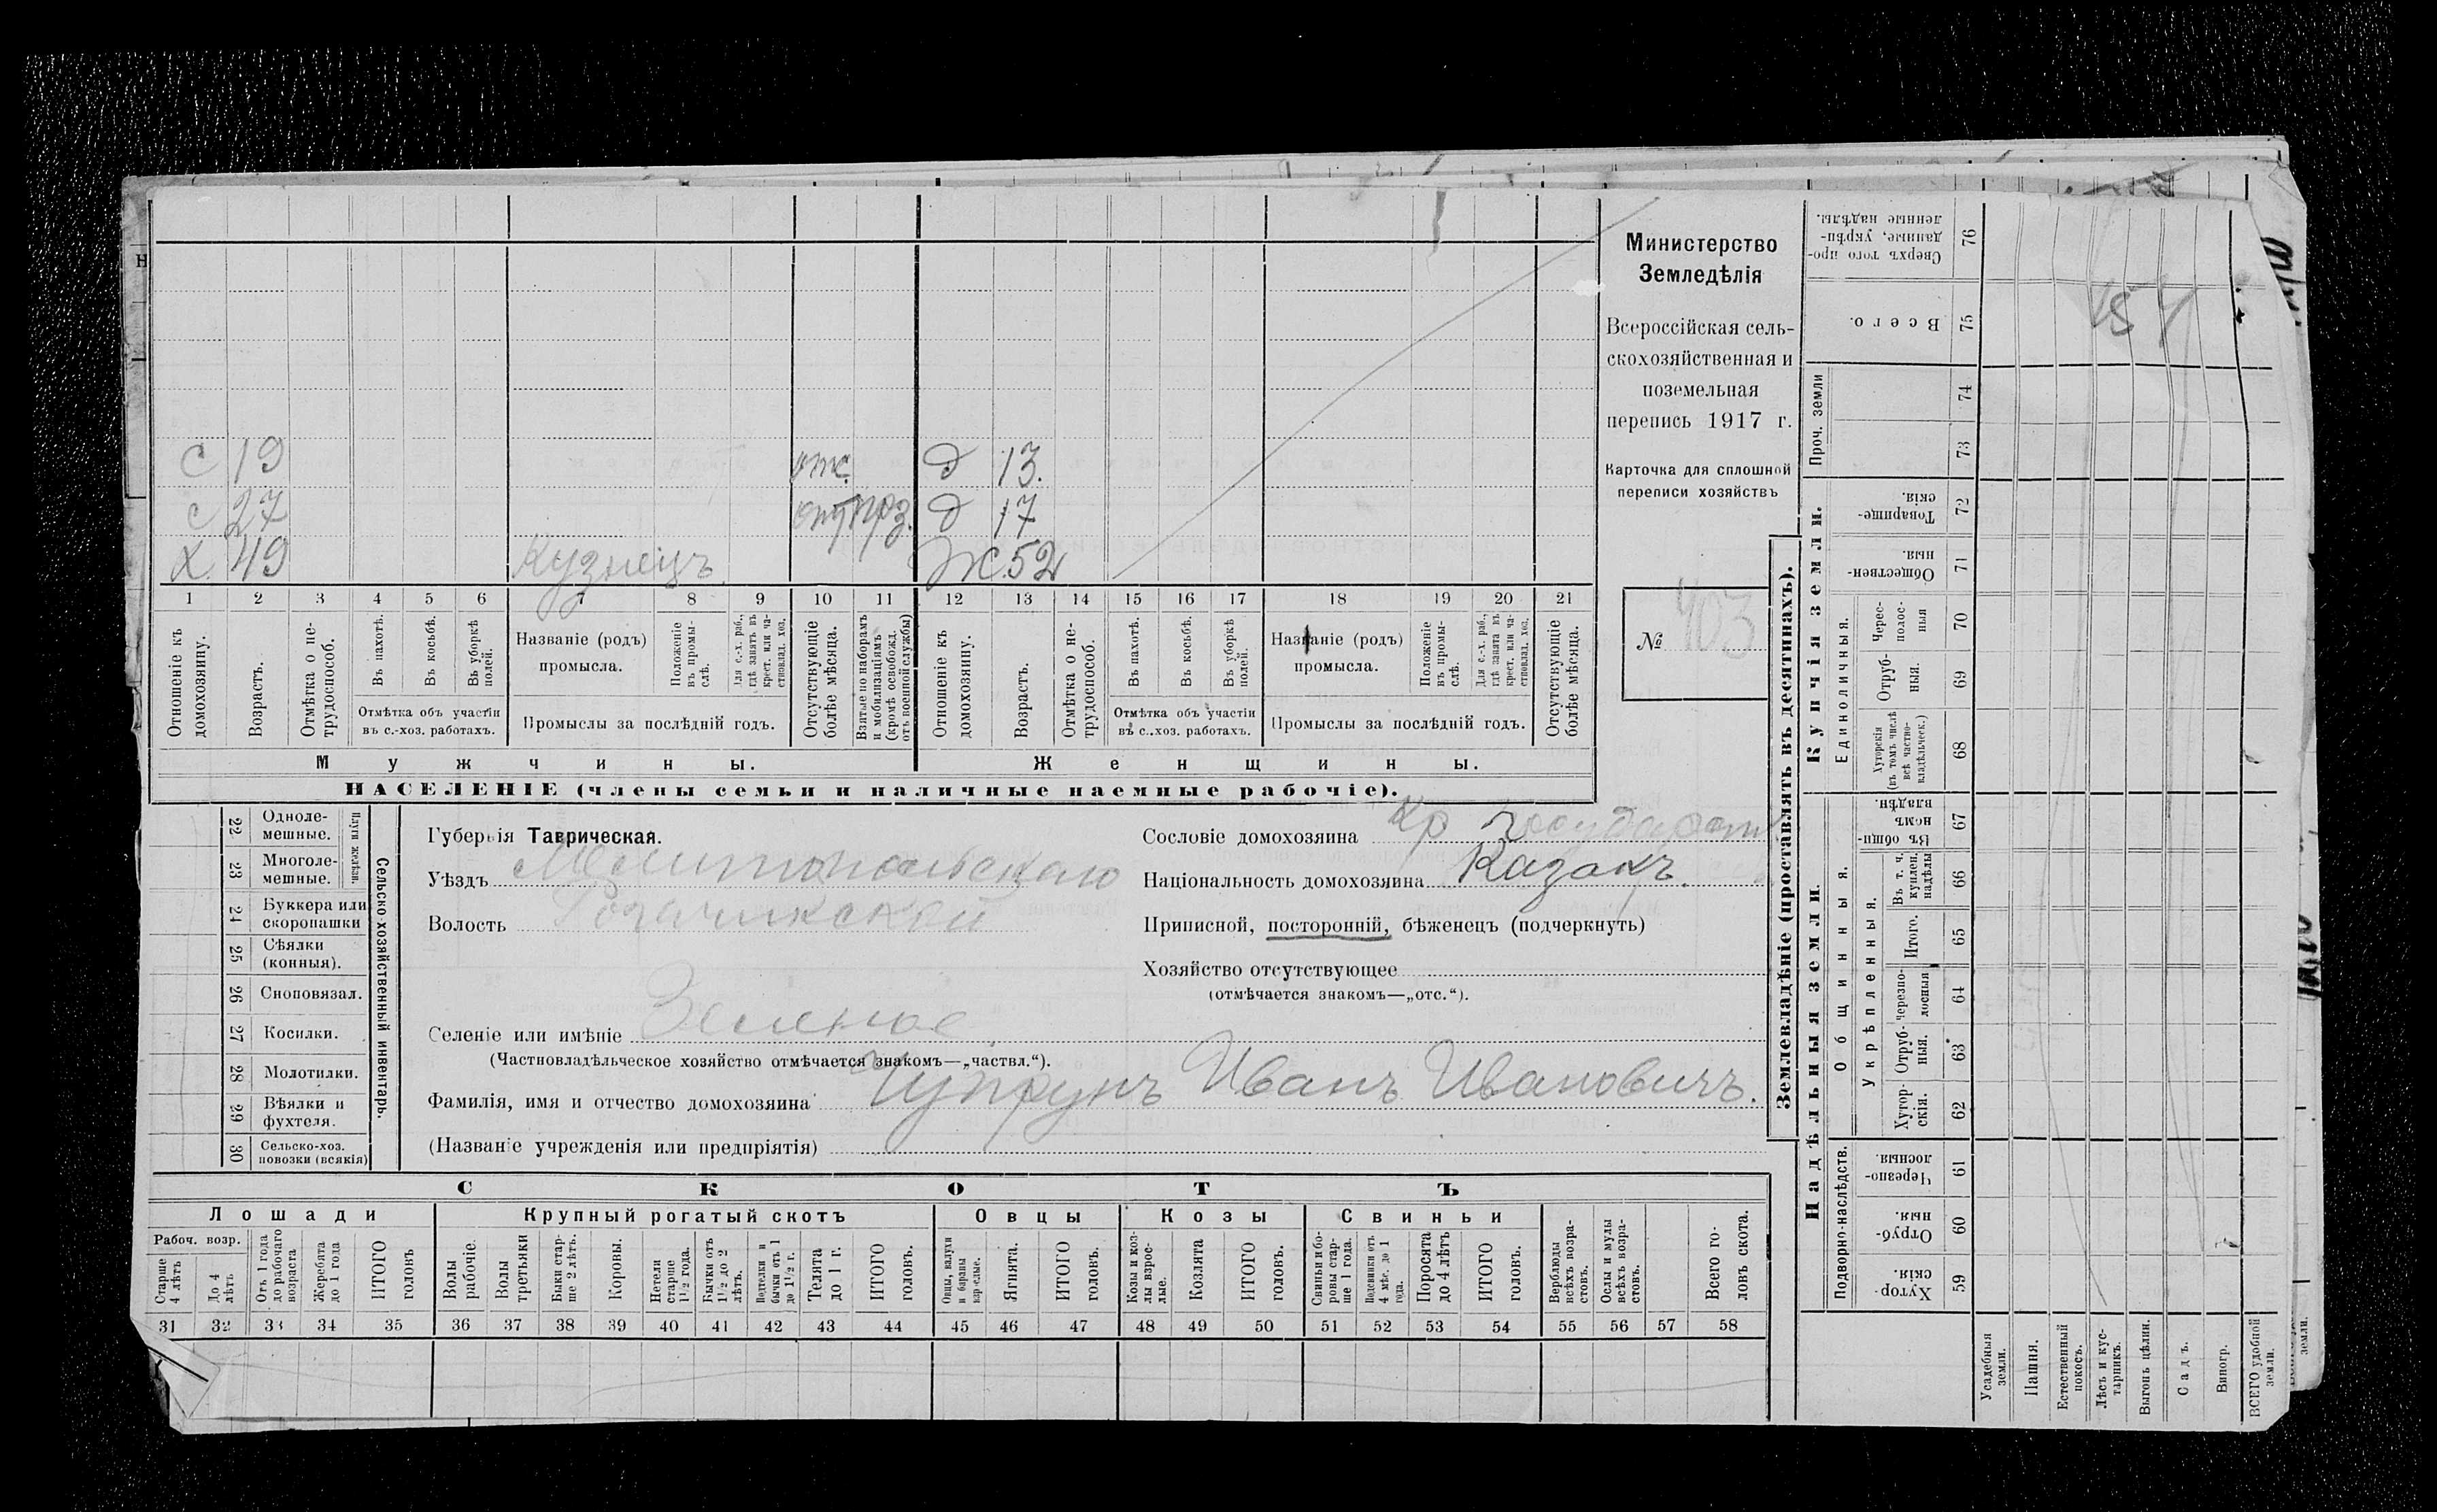 С 19 отс. д 13.
с 27 отс праз. д 17
Х. 49 Кузнецъ Ж. 52
1 2 3 4 5 6 7 8 9 10 11 12 13 14 15 16 17 18 19 20 21
Отношеніе къ домохозяину.
Возрастъ.
Отмѣтка о не-
трудоспособ.
Въ пахотѣ.
Въ косьбѣ.
Въ уборкѣ полей.
Отмѣтка объ участіи
въ с.-хоз. работахъ.
Названіе (родъ)
промысла.
Положеніе въ промы-
слѣ.
Для с.-х. раб., гдѣ занятъ въ крест. или ча-
стновлад. хоз.
Промыслы за послѣдній годъ.
Отсутствующіе болѣе мѣсяца.
Взятые по наборамъ и мобилизаціямъ (кромѣ освобожд. отъ военной службы)
Отношеніе къ домохозяину.
Возрастъ.
Отмѣтка о не-
трудоспособ.
Въ пахотѣ.
Въ косьбѣ.
Въ уборкѣ полей.
Отмѣтка объ участіи
въ с.-хоз. работахъ.
Названіе (родъ)
промысла.
Положеніе въ промы-
слѣ.
Для с.-х. раб., гдѣ занята въ крест. или ча-
стновлад. хоз.
Промыслы за послѣдній годъ.
Отсутствующіе болѣе мѣсяца.
Мужчины. Женщины.
НАСЕЛЕНІЕ (члены семьи и наличные наемные рабочіе).
Министерство
Земледѣлія
Всероссійская сель-
скохозяйственная и
поземельная
перепись 1917 г.
Карточка для сплошной
переписи хозяйствъ
№ 403
Сельско-хозяйственный инвентарь.
Плуги желѣзн.
22 Одноле-
мешные.
23 Многоле-
мешные.
24 Буккера или
скоропашки
25 Сѣялки
(конныя).
26 Сноповязал.
27 Косилки.
28 Молотилки.
29 Вѣялки и
фухтеля.
30 Сельско-хоз.
повозки (всякія)
Губернія Таврическая.
Уѣздъ Мелитопольскаго
Волость Рогачикской
Селеніе или имѣніе Зеленое
(Частновладѣльческое хозяйство отмѣчается знакомъ—„частвл.“).
Фамилія, имя и отчество домохозяина Чупрунъ Иванъ Ивановичъ.
(Названіе учрежденія или предпріятія)
Сословіе домохозяина Кр государств
Національность домохозяина Казакъ.
Приписной, посторонній, бѣженецъ (подчеркнуть)
Хозяйство отсутствующее
(отмѣчается знакомъ—„отс.“).
СКОТЪ
Лошади Крупный рогатый скотъ Овцы Козы Свиньи
Рабоч. возр.
Старше 4 лѣтъ
До 4 лѣтъ
Отъ 1 года до рабочаго возраста
Жеребята до 1 года
ИТОГО головъ
Волы рабочіе.
Волы третьяки
Быки стар-
ше 2 лѣтъ.
Коровы.
Нетели старше 1½ года.
Бычки отъ 1½ до 2 лѣтъ.
Подтелки и бычки отъ 1 до 1½ г.
Телята до 1 г.
ИТОГО головъ.
Овцы, валухи и бараны взрослые.
Ягнята.
ИТОГО головъ.
Козы и коз-
лы взрос-
лые.
Козлята
ИТОГО головъ.
Свиньи и бо-
ровы стар-
ше 1 года.
Подсвинки отъ 4 мѣс. до 1 года.
Поросята до 4 лѣтъ
ИТОГО головъ.
Верблюды всѣхъ возра-
стовъ.
Ослы и мулы всѣхъ возра-
стовъ.
Всего го-
ловъ скота.
31 32 33 34 35 36 37 38 39 40 41 42 43 44 45 46 47 48 49 50 51 52 53 54 55 56 57 58
Землевладѣніе (проставлять въ десятинахъ).
Надѣльныя земли. Купчія земли. Проч. земли
Подворно-наслѣдств.
Общинныя.
Укрѣпленныя.
Единоличныя.
76 Сверхъ того про-
данные, укрѣп-
ленные надѣлы.
75 Всего.
74
73
72 Товарище-
скія.
71 Обществен-
ныя.
70 Черес-
полос-
ныя
69 Отруб-
ныя.
68 Хуторскія
(въ томъ числѣ
всѣ частно-
владѣльческ.)
67 Въ общин-
номъ
владѣн.
66 Въ т. ч.
куплен.
надѣлы
65 Итого.
64 черезпо-
лосныя
63 Отруб-
ныя.
62 Хутор-
скія.
61 Черезпо-
лосныя.
60 Отруб-
ныя.
59 Хутор-
скія.
Усадебныя земли.
Пашня.
Естественный покосъ.
Лѣсъ и кус-
тарникъ.
Выгонъ цѣлин.
Садъ.
Виногр.
ВСЕГО удобной земли.
земли.